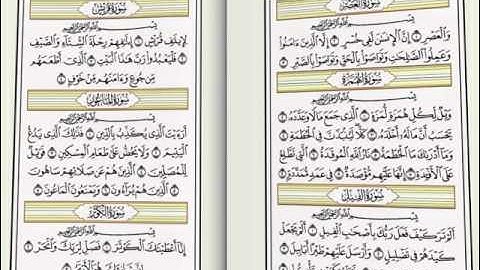 سُورَةُ العَصْرِ
بِسْمِ اللَّهِ الرَّحْمَٰنِ الرَّحِيمِ
وَالْعَصْرِ ١ إِنَّ الْإِنسَٰنَ لَفِى خُسْرٍ ٢ إِلَّا الَّذِينَ ءَامَنُوا
وَعَمِلُوا الصَّٰلِحَٰتِ وَتَوَاصَوْا بِالْحَقِّ وَتَوَاصَوْا بِالصَّبْرِ ٣
سُورَةُ الهُمَزَةِ
بِسْمِ اللَّهِ الرَّحْمَٰنِ الرَّحِيمِ
وَيْلٌ لِّكُلِّ هُمَزَةٍ لُّمَزَةٍ ١ الَّذِى جَمَعَ مَالًا وَعَدَّدَهُ ٢
يَحْسَبُ أَنَّ مَالَهُ أَخْلَدَهُ ٣ كَلَّا لَيُنۢبَذَنَّ فِى الْحُطَمَةِ ٤
وَمَا أَدْرَىٰكَ مَا الْحُطَمَةُ ٥ نَارُ اللَّهِ الْمُوقَدَةُ ٦ الَّتِى تَطَّلِعُ
عَلَى الْأَفْـِٔدَةِ ٧ إِنَّهَا عَلَيْهِم مُّؤْصَدَةٌ ٨ فِى عَمَدٍ مُّمَدَّدَةٍ ٩
سُورَةُ الفِيلِ
بِسْمِ اللَّهِ الرَّحْمَٰنِ الرَّحِيمِ
أَلَمْ تَرَ كَيْفَ فَعَلَ رَبُّكَ بِأَصْحَٰبِ الْفِيلِ ١ أَلَمْ يَجْعَلْ
كَيْدَهُمْ فِى تَضْلِيلٍ ٢ وَأَرْسَلَ عَلَيْهِمْ طَيْرًا أَبَابِيلَ ٣
سُورَةُ قُرَيْشٍ
بِسْمِ اللَّهِ الرَّحْمَٰنِ الرَّحِيمِ
لِإِيلَٰفِ قُرَيْشٍ ١ إِۦلَٰفِهِمْ رِحْلَةَ الشِّتَاءِ وَالصَّيْفِ
٢ فَلْيَعْبُدُوا رَبَّ هَٰذَا الْبَيْتِ ٣ الَّذِى أَطْعَمَهُم
مِّن جُوعٍ وَءَامَنَهُم مِّنْ خَوْفٍ ٤
سُورَةُ المَاعُونِ
بِسْمِ اللَّهِ الرَّحْمَٰنِ الرَّحِيمِ
أَرَءَيْتَ الَّذِى يُكَذِّبُ بِالدِّينِ ١ فَذَٰلِكَ الَّذِى يَدُعُّ
الْيَتِيمَ ٢ وَلَا يَحُضُّ عَلَىٰ طَعَامِ الْمِسْكِينِ ٣ فَوَيْلٌ
لِّلْمُصَلِّينَ ٤ الَّذِينَ هُمْ عَن صَلَاتِهِمْ سَاهُونَ
٥ الَّذِينَ هُمْ يُرَاءُونَ ٦ وَيَمْنَعُونَ الْمَاعُونَ ٧
سُورَةُ الكَوْثَرِ
بِسْمِ اللَّهِ الرَّحْمَٰنِ الرَّحِيمِ
إِنَّا أَعْطَيْنَٰكَ الْكَوْثَرَ ١ فَصَلِّ لِرَبِّكَ وَانْحَرْ ٢
إِنَّ شَانِئَكَ هُوَ الْأَبْتَرُ